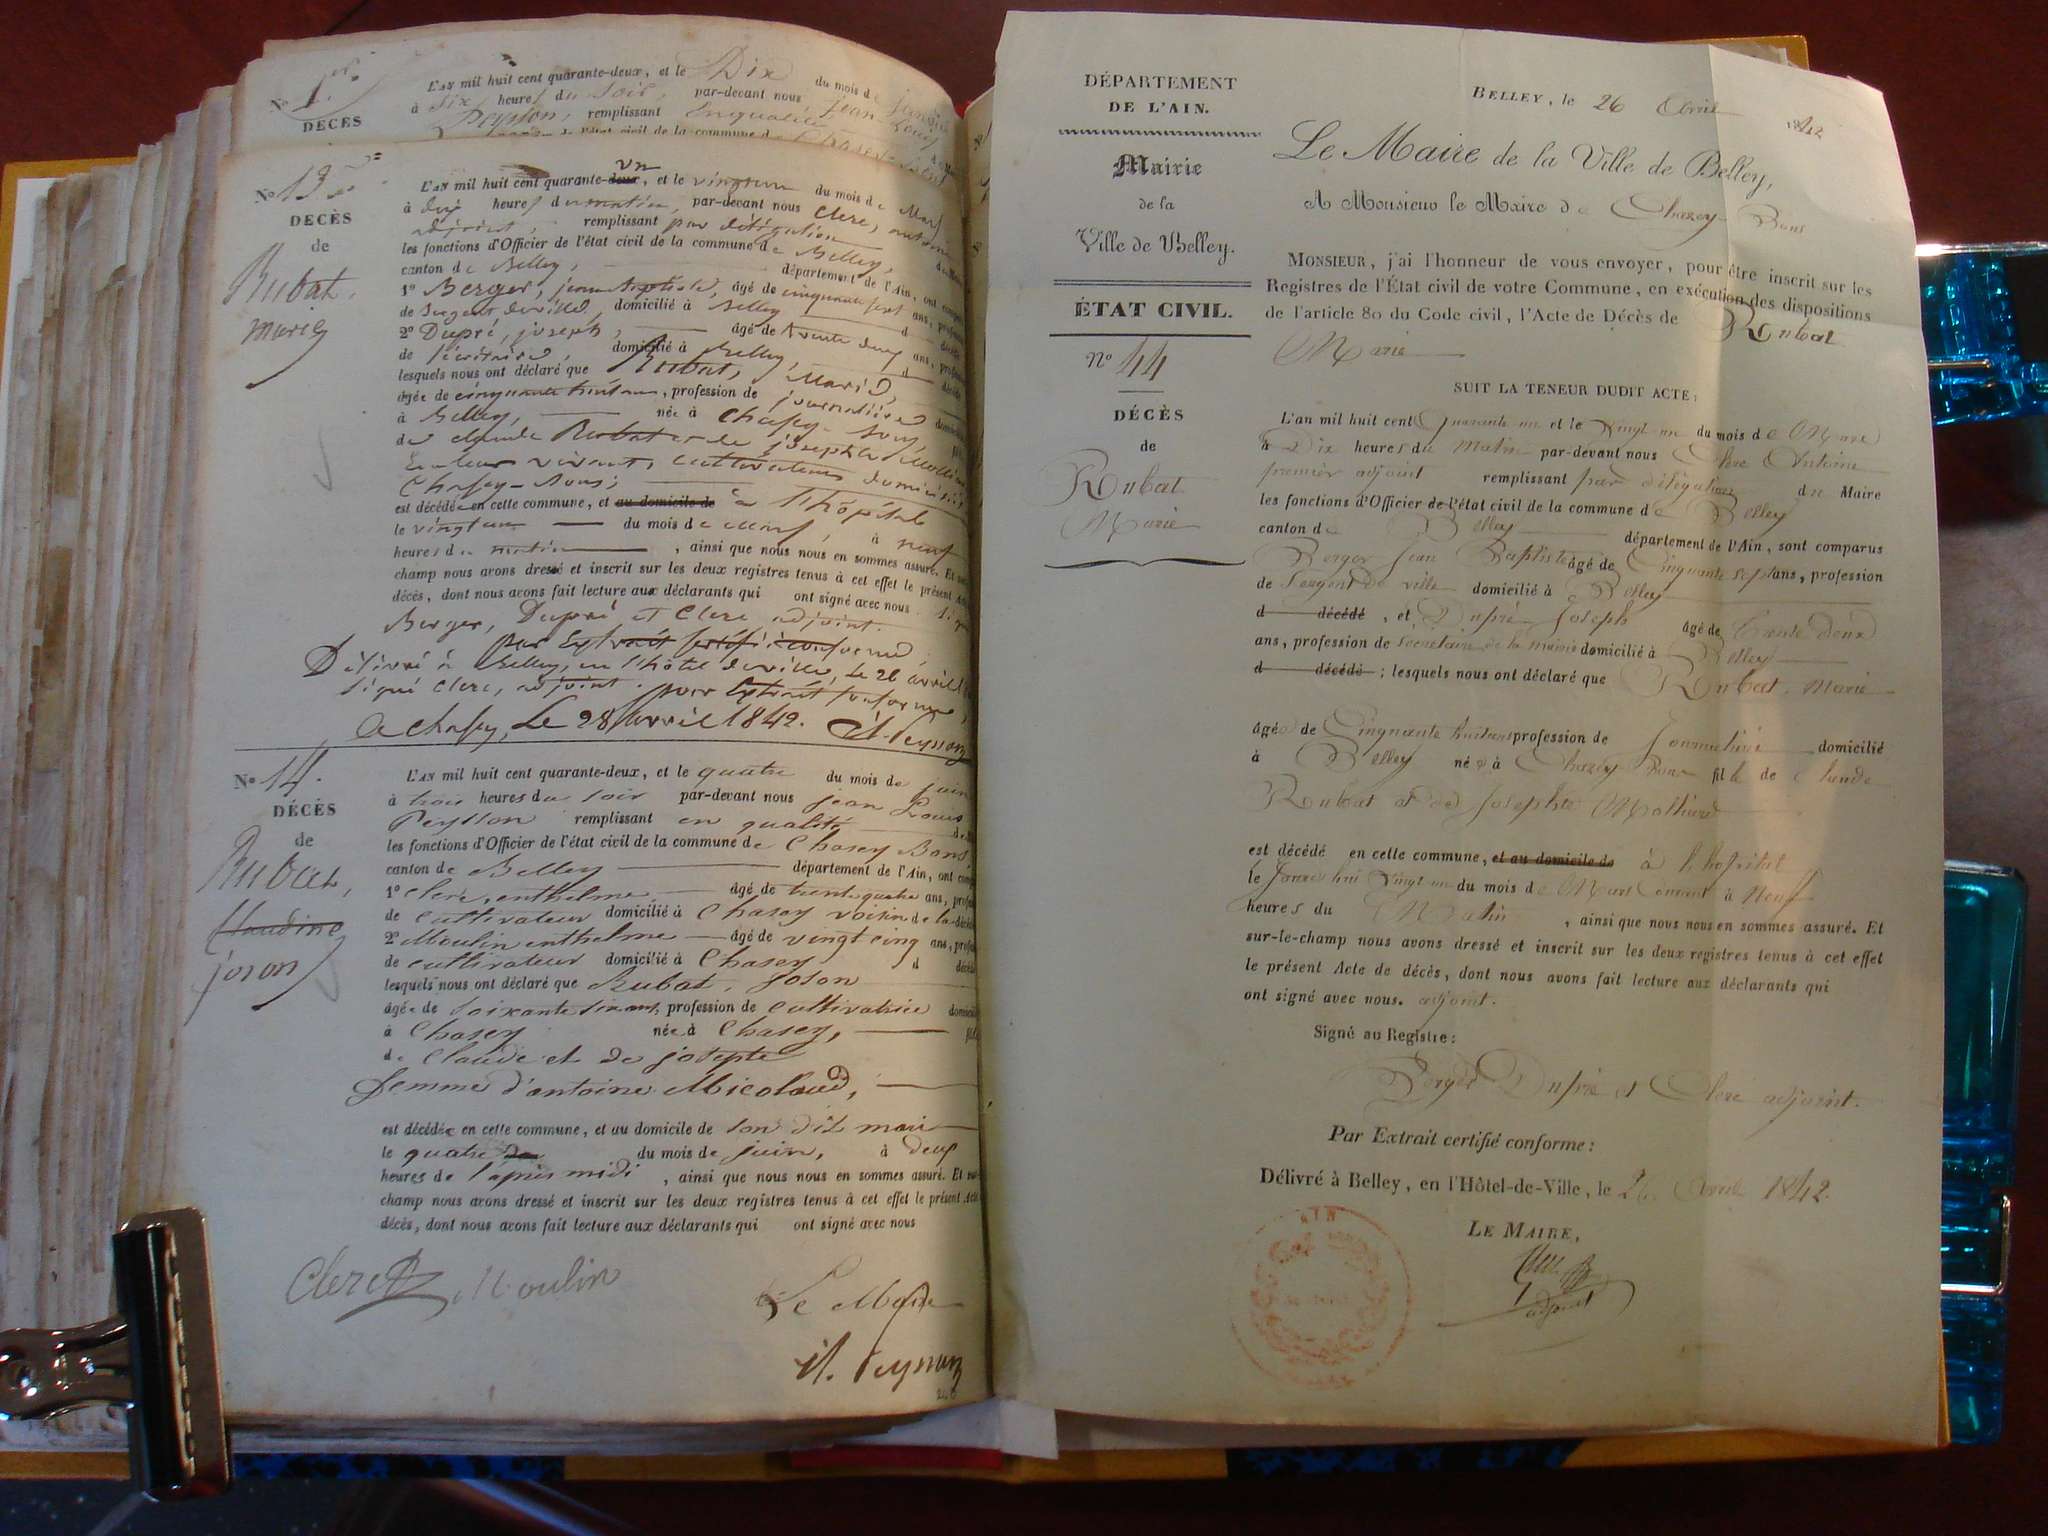 No 1er
DÉCÈS
L'AN mil huit cent quarante-deux, et le Dix du mois de janvier
à Six heures du Soir, par-devant nous Jean Louis
Peysson, remplissant Enqualité
No 13
DECÈS
de
Rubat,
marie
un
L'AN mil huit cent quarante-deux, et le vingtun du mois de Mars
à dix heures du matin, par-devant nous Clerc, antoine
adjoint, remplissant par délégation
les fonctions d'Officier de l'état civil de la commune de Belley,
canton de Belley, département de l'Ain, ont
1o Berger, jean Baptiste, âgé de cinquante sept ans,
de Sergent deville, domicilié à Belley
2o Dupré, joseph, âgé de trente deux ans,
de Secrétaire, domicilié à Belley,
lesquels nous ont déclaré que Rubat, Marie,
âgée de cinquante huit ans, profession de journalière
à Belley, née à Chasey-Bons,
de claude Rubat et de josephte
vivant, cultivateurs domiciliés
Chasey-Bons;
est décédée en cette commune, et au domicile de à l'hôpital
le vingtun du mois de mars, à neuf
heures du matin, ainsi que nous nous en sommes assuré. Et
champ nous avons dressé et inscrit sur les deux registres tenus à cet effet le présent Acte
décès, dont nous avons fait lecture aux déclarants qui ont signé avec nous.
Berger, Dupré et Clerc adjoint.
par Extrait certifié conforme,
Délivré à Belley, en l'hôtel deville, le 26 avril
signé Clerc, adjoint. pour Extrait conforme,
a chasey, Le 28 avril 1842. Peysson
No 14.
DÉCÈS
de
Rubat,
Claudine
joson
L'AN mil huit cent quarante-deux, et le quatre du mois de juin
à trois heures du soir par-devant nous jean Louis
Peysson remplissant en qualité
les fonctions d'Officier de l'état civil de la commune de Chasey Bons,
canton de Belley département de l'Ain, ont
1o clerc, enthelme âgé de trente quatre ans,
de cultivateur domicilié à Chasey voisin de la
2o Moulin enthelme âgé de vingt cinq ans,
de cultivateur domicilié à Chasey d
lesquels nous ont déclaré que Rubat, Joson
âgée de soixante six ans, profession de cultivatrice
à Chasey née à Chasey,
de Claude et de josepte
femme d'antoine Micoloud,
est décédée en cette commune, et au domicile de son dit mari
le quatre du mois de juin, à deux
heures de l'après midi, ainsi que nous nous en sommes assuré. Et
champ nous avons dressé et inscrit sur les deux registres tenus à cet effet le présent Acte
décès, dont nous avons fait lecture aux déclarants qui ont signé avec nous
Clerc Moulin
Le Maire
Peysson
DÉPARTEMENT
DE L'AIN.
Mairie
de la
Ville de Belley.
ÉTAT CIVIL.
No 44
DÉCÈS
de
Rubat
Marie
BELLEY, le 26 Avril 1842
Le Maire de la Ville de Belley,
A Monsieur le Maire de Chazey-Bons
MONSIEUR, j'ai l'honneur de vous envoyer, pour être inscrit sur les
Registres de l'État civil de votre Commune, en exécution des dispositions
de l'article 80 du Code civil, l'Acte de Décès de Rubat
Marie
SUIT LA TENEUR DUDIT ACTE:
L'an mil huit cent Quarante un et le Vingt un du mois de Mars
à Dix heures du Matin par-devant nous Clerc Antoine
premier adjoint remplissant par délégation du Maire
les fonctions d'Officier de l'état civil de la commune de Belley
canton de Belley département de l'Ain, sont comparus
Berger Jean Baptiste âgé de Cinquante sept ans, profession
de Sergent de ville domicilié à Belley
d décédé, et Dupré Joseph âgé de Trente Deux
ans, profession de Secrétaire de la mairie domicilié à Belley
d décédé; lesquels nous ont déclaré que Rubat Marie
âgée de Cinquante huit ans profession de Journalière domicilié
à Belley née à Chazey Bons fille de Claude
Rubat et de Josephte
est décédé en cette commune, et au domicile de à l'hopital
le Jourd'hui Vingt un du mois de Mars Courant à Neuf
heures du Matin, ainsi que nous nous en sommes assuré. Et
sur-le-champ nous avons dressé et inscrit sur les deux registres tenus à cet effet
le présent Acte de décès, dont nous avons fait lecture aux déclarants qui
ont signé avec nous. adjoint.
Signé au Registre:
Berger Dupré et Clerc adjoint.
Par Extrait certifié conforme:
Délivré à Belley, en l'Hôtel-de-Ville, le 26 Avril 1842.
LE MAIRE,
adjoint
AIN